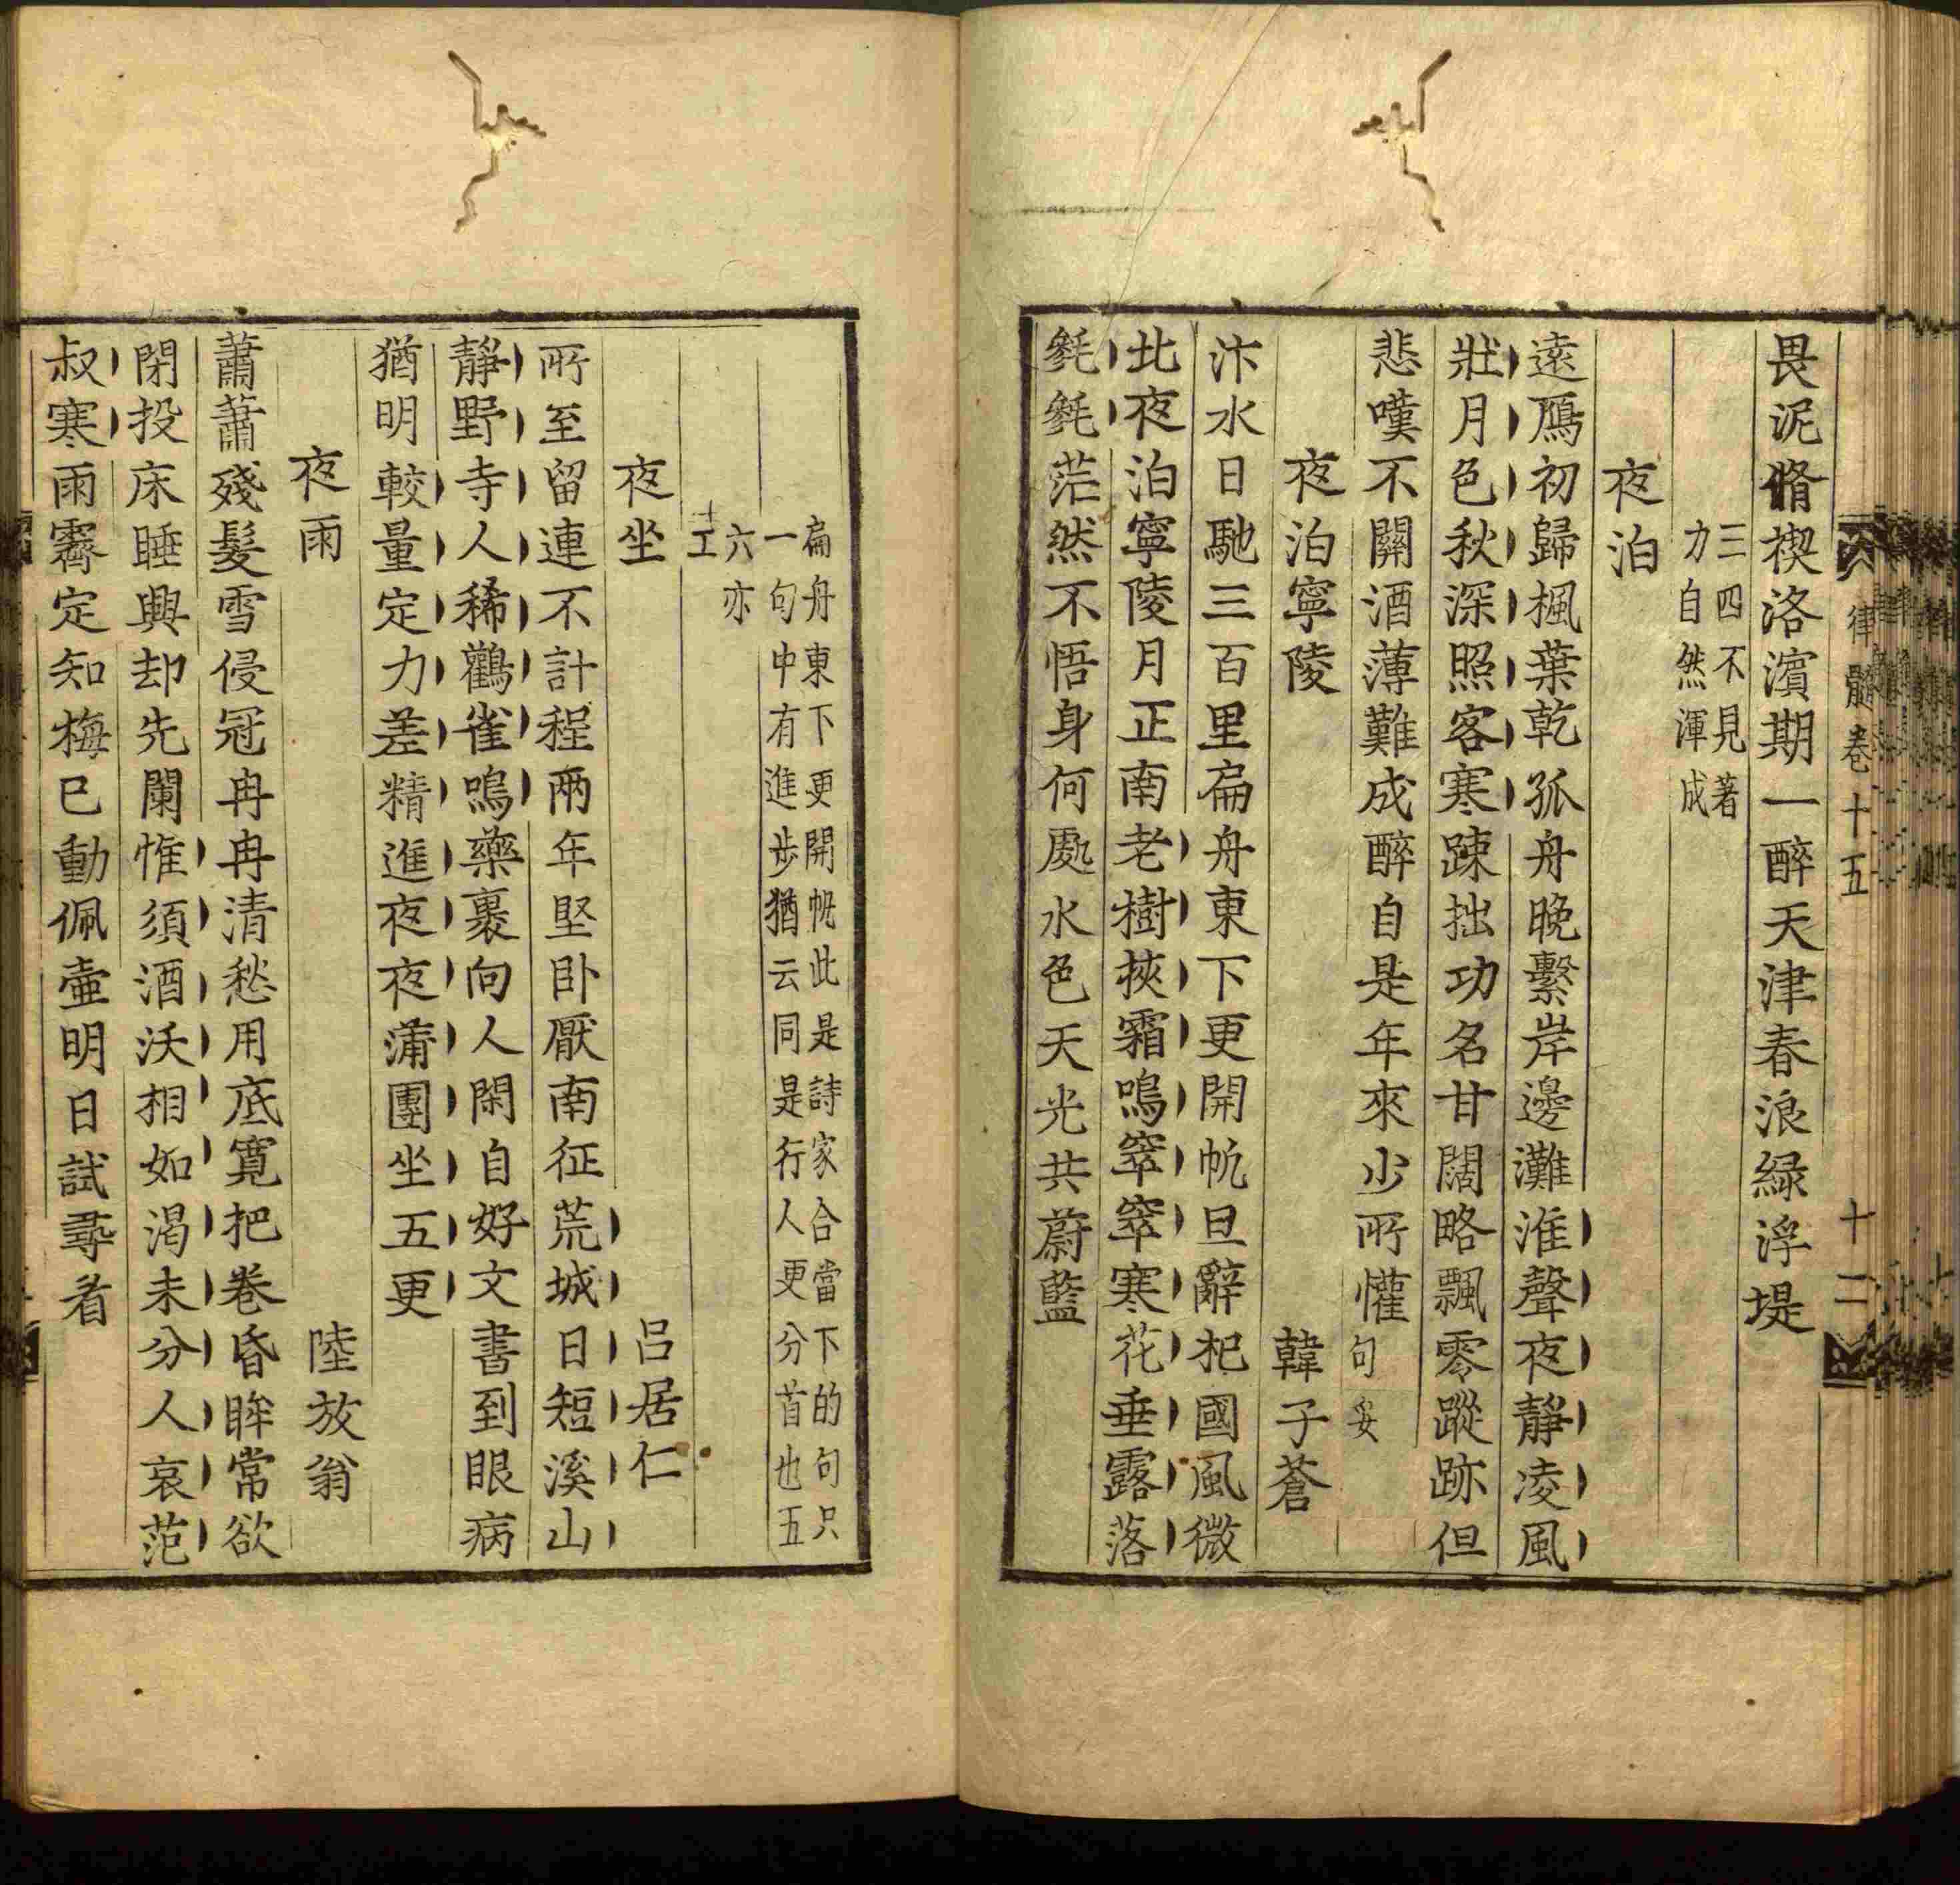 律髓卷十五
十二
畏泥脩禊洛濱期一醉天津春浪綠浮堤
三四不見著
力自然渾成
夜泊
遠鴈初歸楓葉乾孤舟晚繫岸邊灘淮聲夜靜凌風
壯月色秋深照客寒踈拙功名甘闊略飄零蹤跡但
悲嘆不關酒薄難成醉自是年來少所懽句妥
夜泊寧陵
韓子蒼
汴水日馳三百里扁舟東下更開帆旦辭杞國風微
北夜泊寧陵月正南老樹挾霜鳴窣窣寒花垂露落
毿毿茫然不悟身何處水色天光共蔚藍
扁舟東下更開帆此是詩家合當下的句只
一句中有進步猶云同是行人更分首也五
六亦
工
夜坐
呂居仁
所至留連不計程兩年堅卧厭南征荒城日短溪山
靜野寺人稀鸛雀鳴藥裹向人閑自好文書到眼病
猶明較量定力差精進夜夜蒲團坐五更
夜雨
陸放翁
蕭蕭殘髮雪侵冠冉冉清愁用底寬把卷昏眸常欲
閉投床睡興却先闌惟須酒沃相如渴未分人哀范
叔寒雨霽定知梅已動佩壺明日試尋看